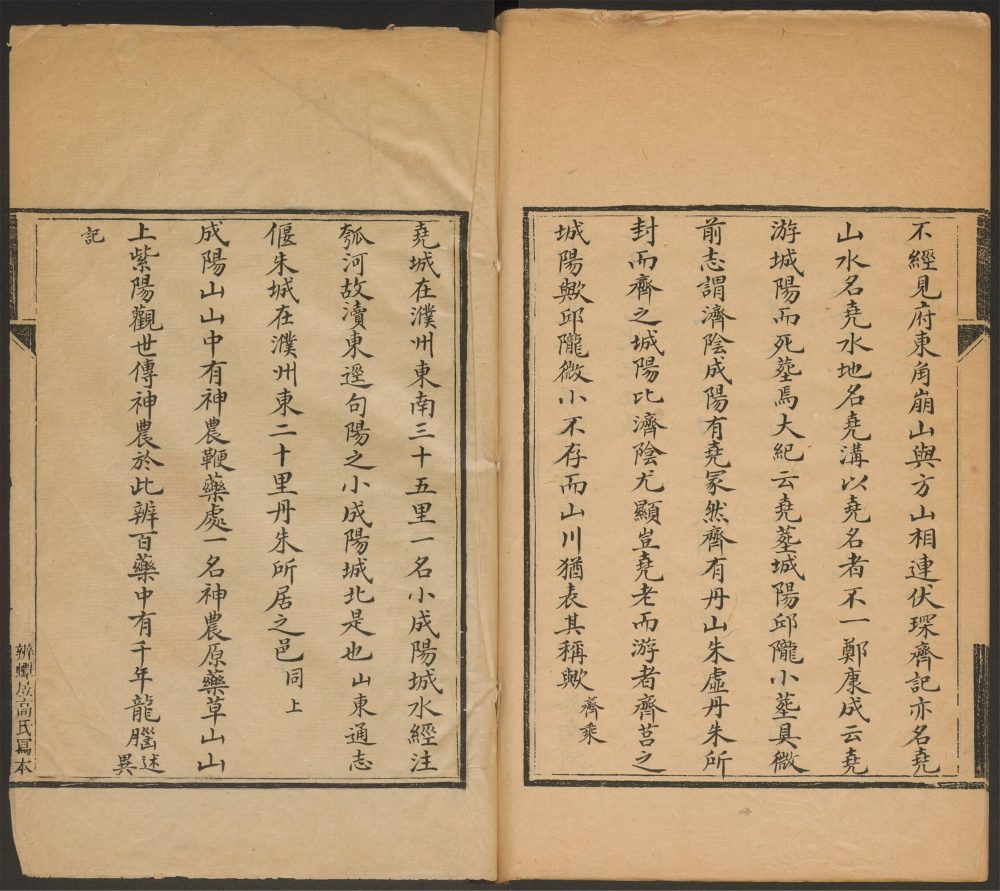 不經見府東角崩山與方山相連伏琛齊記亦名堯
山水名堯水地名堯溝以堯名者不一鄭康成云堯
游城陽而死塟焉大紀云堯塟城陽邱隴小塟具微
前志謂濟陰成陽有堯冢然齊有丹山朱虛丹朱所
封而齊之城陽比濟陰尤顯豈堯老而游者齊莒之
城陽歟邱隴微小不存而山川猶表其稱歟 齊乘
堯城在濮州東南三十五里一名小成陽城水經注
瓠河故瀆東逕句陽之小成陽城北是也山東通志
偃朱城在濮州東二十里丹朱所居之邑同上
成陽山山中有神農鞭藥處一名神農原藥草山山
上紫陽觀世傳神農於此辨百藥中有千年龍腦述異
記
辨蟫居高氏寫本